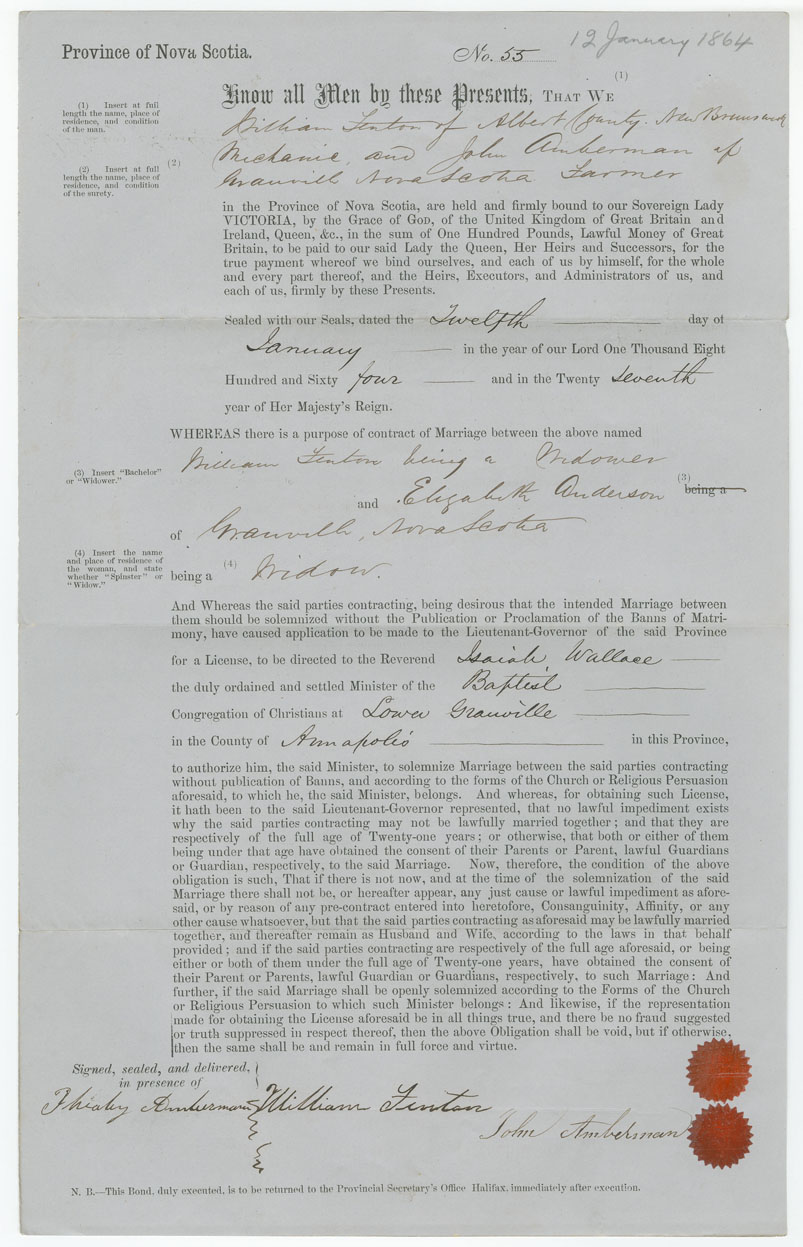 12 January 1864
Province of Nova Scotia.
No. 55
(1)
Know all Men by these Presents, THAT WE
(1) Insert at full
length the name, place of
residence, and condition
of the man.
William Fenton of Albert County. New Brunswick
(2)
Mechanic, and John Amberman of
(2) Insert at full
length the name, place of
residence, and condition
of the surety.
Granvill Nova Scotia Farmer
in the Province of Nova Scotia, are held and firmly bound to our Sovereign Lady
VICTORIA, by the Grace of GOD, of the United Kingdom of Great Britain and
Ireland, Queen, &c., in the sum of One Hundred Pounds, Lawful Money of Great
Britain, to be paid to our said Lady the Queen, Her Heirs and Successors, for the
true payment whereof we bind ourselves, and each of us by himself, for the whole
and every part thereof, and the Heirs, Executors, and Administrators of us, and
each of us, firmly by these Presents.
Sealed with our Seals, dated the Twelfth day of
January in the year of our Lord One Thousand Eight
Hundred and Sixty four and in the Twenty seventh
year of Her Majesty's Reign.
WHEREAS there is a purpose of contract of Marriage between the above named
William Fenton being a Widower
(3) Insert "Bachelor"
or "Widower."
(3)
and Elizabeth Anderson being a
of Granvill, Nova Scotia
(4) Insert the name
and place of residence of
the woman, and state
whether "Spinster" or
"Widow."
being a (4) Widow.
And Whereas the said parties contracting, being desirous that the intended Marriage between
them should be solemnized without the Publication or Proclamation of the Banns of Matri-
mony, have caused application to be made to the Lieutenant-Governor of the said Province
for a License, to be directed to the Reverend Isaiah Wallace
the duly ordained and settled Minister of the Baptist
Congregation of Christians at Lower Granville
in the County of Annapolis in this Province,
to authorize him, the said Minister, to solemnize Marriage between the said parties contracting
without publication of Banns, and according to the forms of the Church or Religious Persuasion
aforesaid, to which he, the said Minister, belongs. And whereas, for obtaining such License,
it hath been to the said Lieutenant-Governor represented, that no lawful impediment exists
why the said parties contracting may not be lawfully married together; and that they are
respectively of the full age of Twenty-one years; or otherwise, that both or either of them
being under that age have obtained the consent of their Parents or Parent, lawful Guardians
or Guardian, respectively, to the said Marriage. Now, therefore, the condition of the above
obligation is such, That if there is not now, and at the time of the solemnization of the said
Marriage there shall not be, or hereafter appear, any just cause or lawful impediment as afore-
said, or by reason of any pre-contract entered into heretofore, Consanguinity, Affinity, or any
other cause whatsoever, but that the said parties contracting as aforesaid may be lawfully married
together, and thereafter remain as Husband and Wife, according to the laws in that behalf
provided; and if the said parties contracting are respectively of the full age aforesaid, or being
either or both of them under the full age of Twenty-one years, have obtained the consent of
their Parent or Parents, lawful Guardian or Guardians, respectively, to such Marriage: And
further, if the said Marriage shall be openly solemnized according to the Forms of the Church
or Religious Persuasion to which such Minister belongs: And likewise, if the representation
made for obtaining the License aforesaid be in all things true, and there be no fraud suggested
or truth suppressed in respect thereof, then the above Obligation shall be void, but if otherwise,
then the same shall be and remain in full force and virtue.
Signed, sealed, and delivered,
in presence of
Amberman William Fenton
John Amberman
N. B.—This Bond, duly executed, is to be returned to the Provincial Secretary's Office Halifax, immediately after execution.